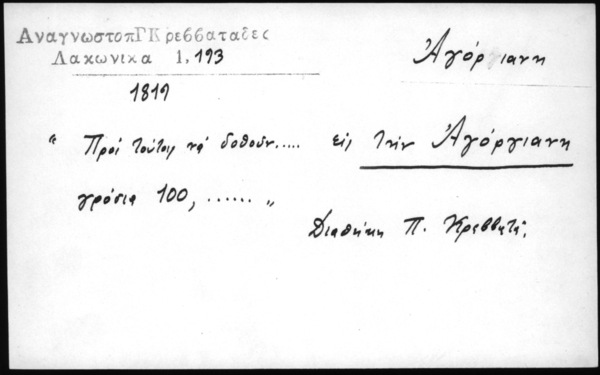 ΑναγνωστοπΓΚρεββαταδες
Λακωνικα 1, 193
Ἀγόργιανη
1819
" Πρός τούτοις νά δοθοῦν..... εἰς τήν Ἀγόργιανη
γρόσια 100, ...... "
Διαθήκη Π. Κρεββατᾶ.